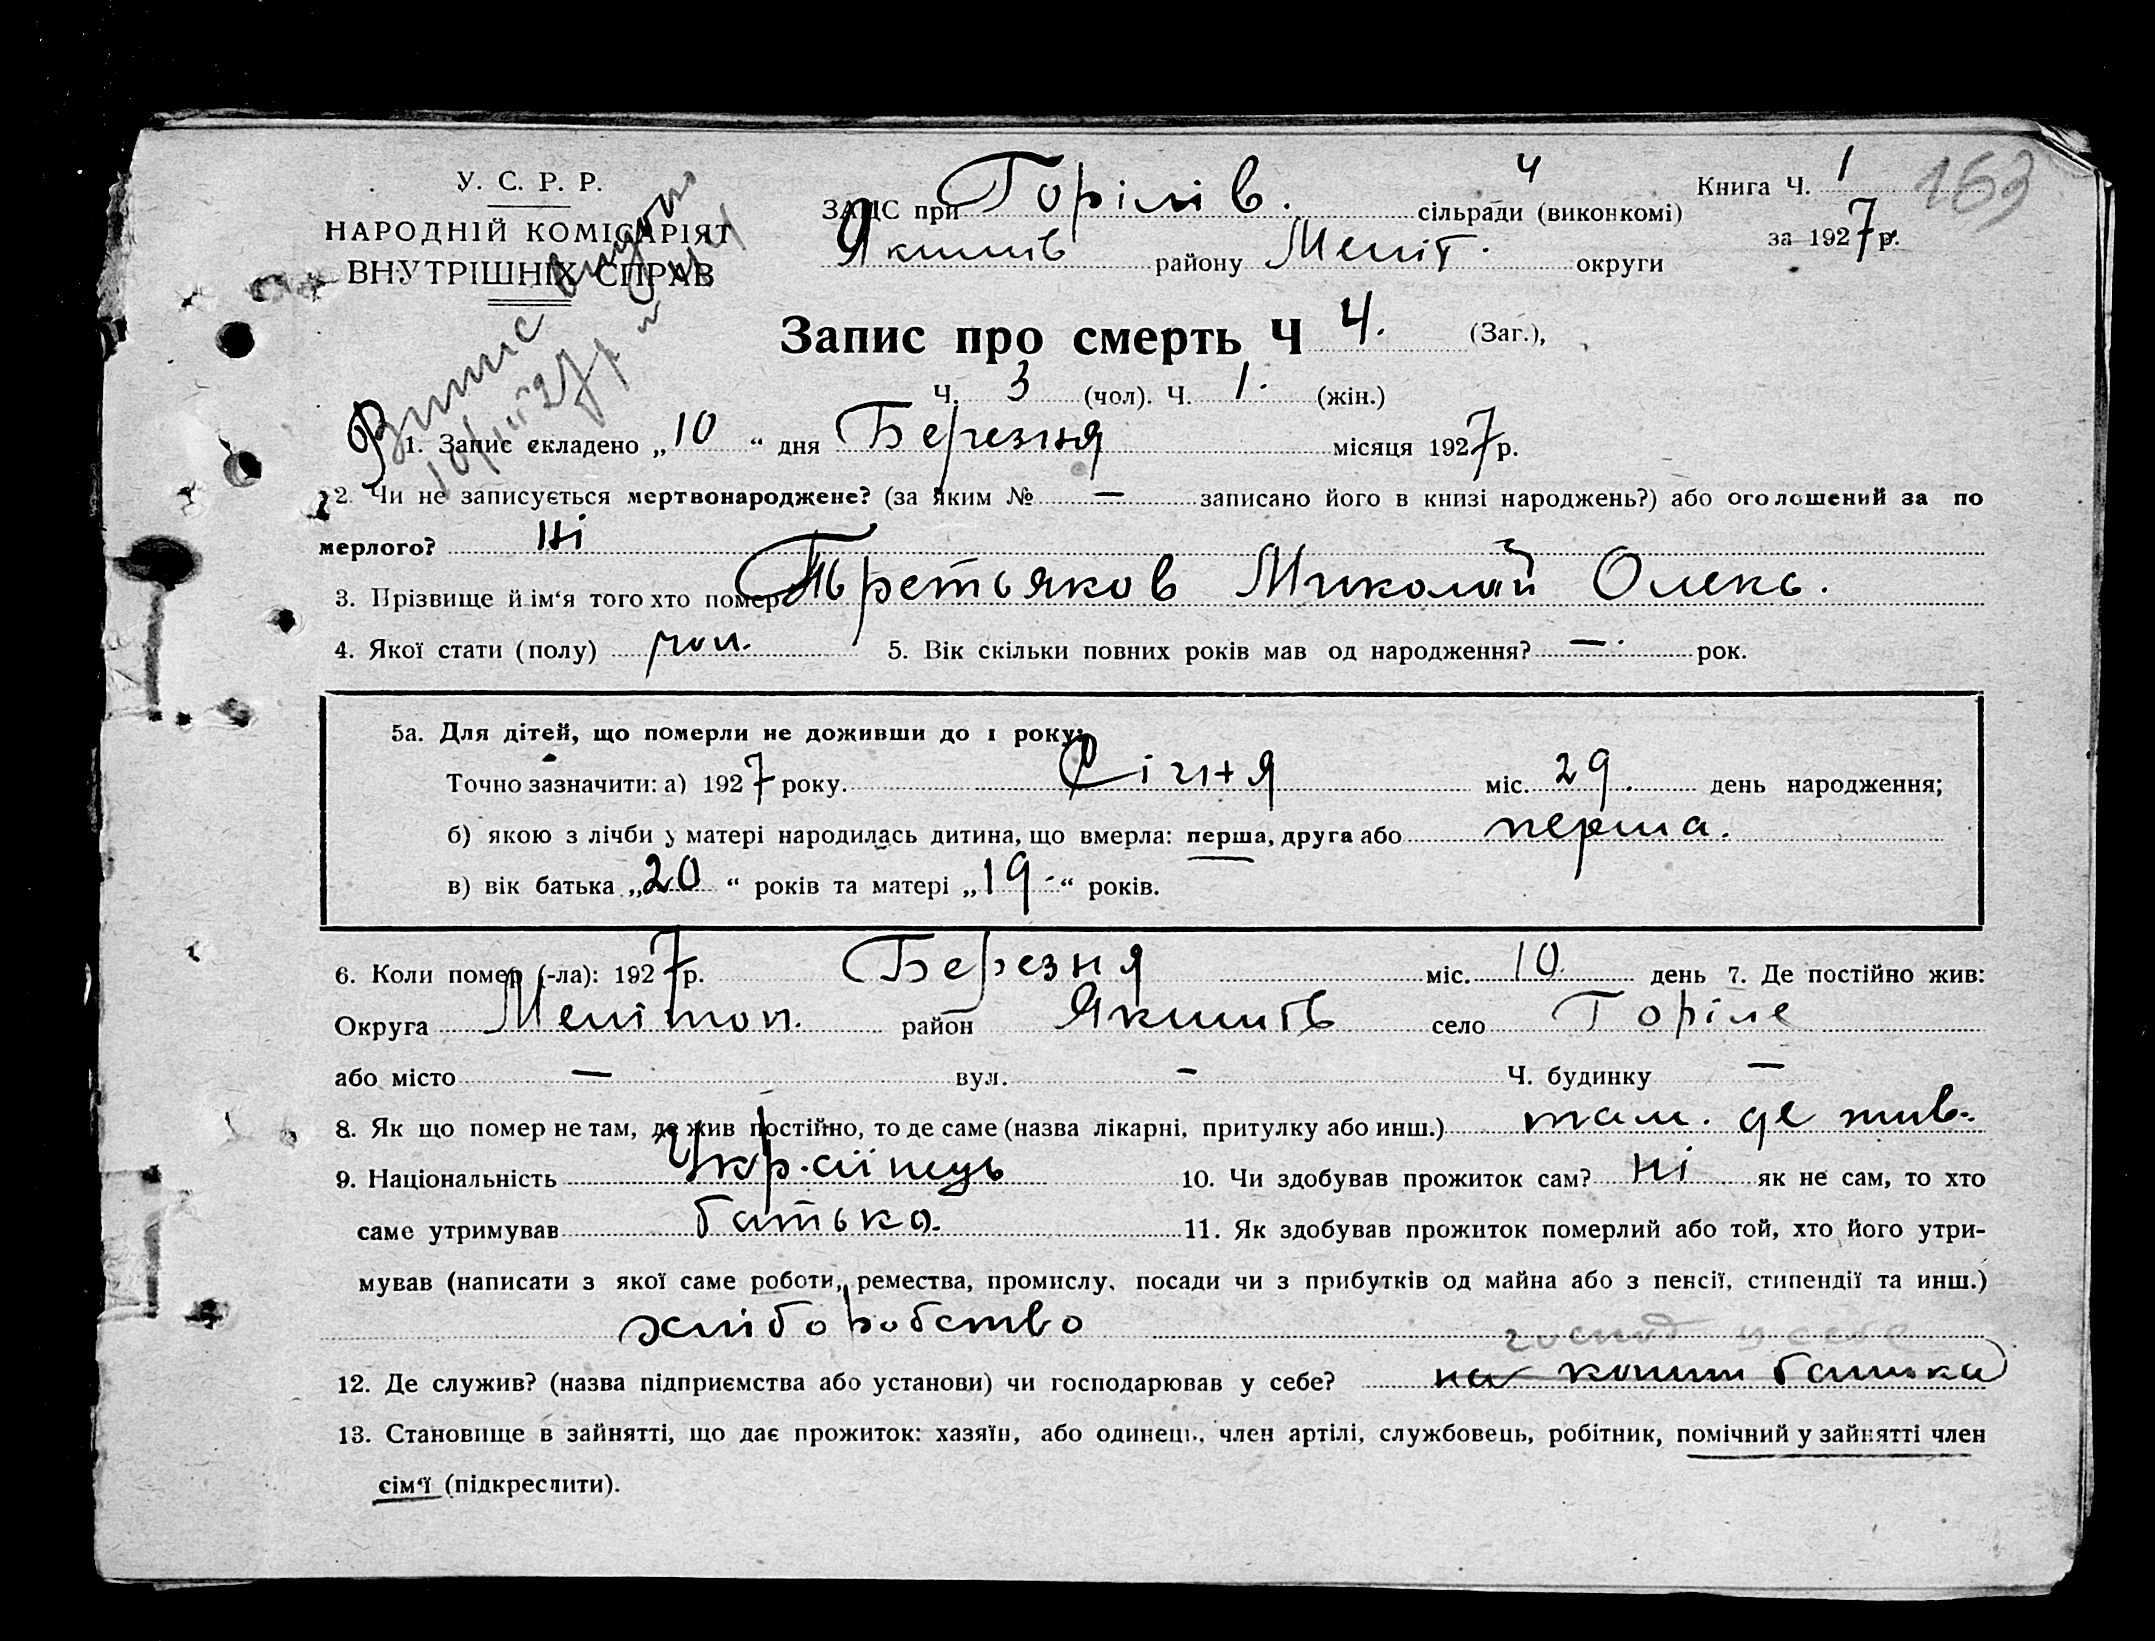 У. С. Р. Р.
НАРОДНІЙ КОМІСАРІЯТ
ВНУТРІШНІХ СПРАВ
Випис
ЗАГС при Горілів. сільради (виконкомі) 4
Якимів району Меліт. округи
Книга Ч. 1
за 1927 р.
163
Запис про смерть Ч 4. (Заг.),
Ч. 3 (чол). Ч. 1. (жін.)
1. Запис складено „10“ дня Березня місяця 1927 р.
2. Чи не записується мертвонароджене? (за яким № — записано його в книзі народжень?) або оголошений за по
мерлого? Ні
3. Прізвище й ім‘я того хто помер Третьяков Миколай Олекс.
4. Якої стати (полу) чол. 5. Вік скільки повних років мав од народження? — рок.
5а. Для дітей, що померли не доживши до 1 року:
Точно зазначити: а) 1927 року. Січня міс. 29. день народження;
б) якою з лічби у матері народилась дитина, що вмерла: перша, друга або перша.
в) вік батька „20“ років та матері „19.“ років.
6. Коли помер (-ла): 1927 р. Березня міс. 10 день 7. Де постійно жив:
Округа Мелітоп. район Якимів село Горіле
або місто — вул. — Ч. будинку —
8. Як що помер не там, де жив постійно, то де саме (назва лікарні, притулку або инш.) там. де жив.
9. Національність Українець 10. Чи здобував прожиток сам? Ні як не сам, то хто
саме утримував батько. 11. Як здобував прожиток померлий або той, хто його утри-
мував (написати з якої саме роботи, ремества, промислу, посади чи з прибутків од майна або з пенсії, стипендії та инш.)
хліборобство
господ у себе
12. Де служив? (назва підприємства або установи) чи господарював у себе? на кошти батька
13. Становище в зайнятті, що дає прожиток: хазяїн, або одинець, член артілі, службовець, робітник, помічний у зайнятті член
сім‘ї (підкреслити).